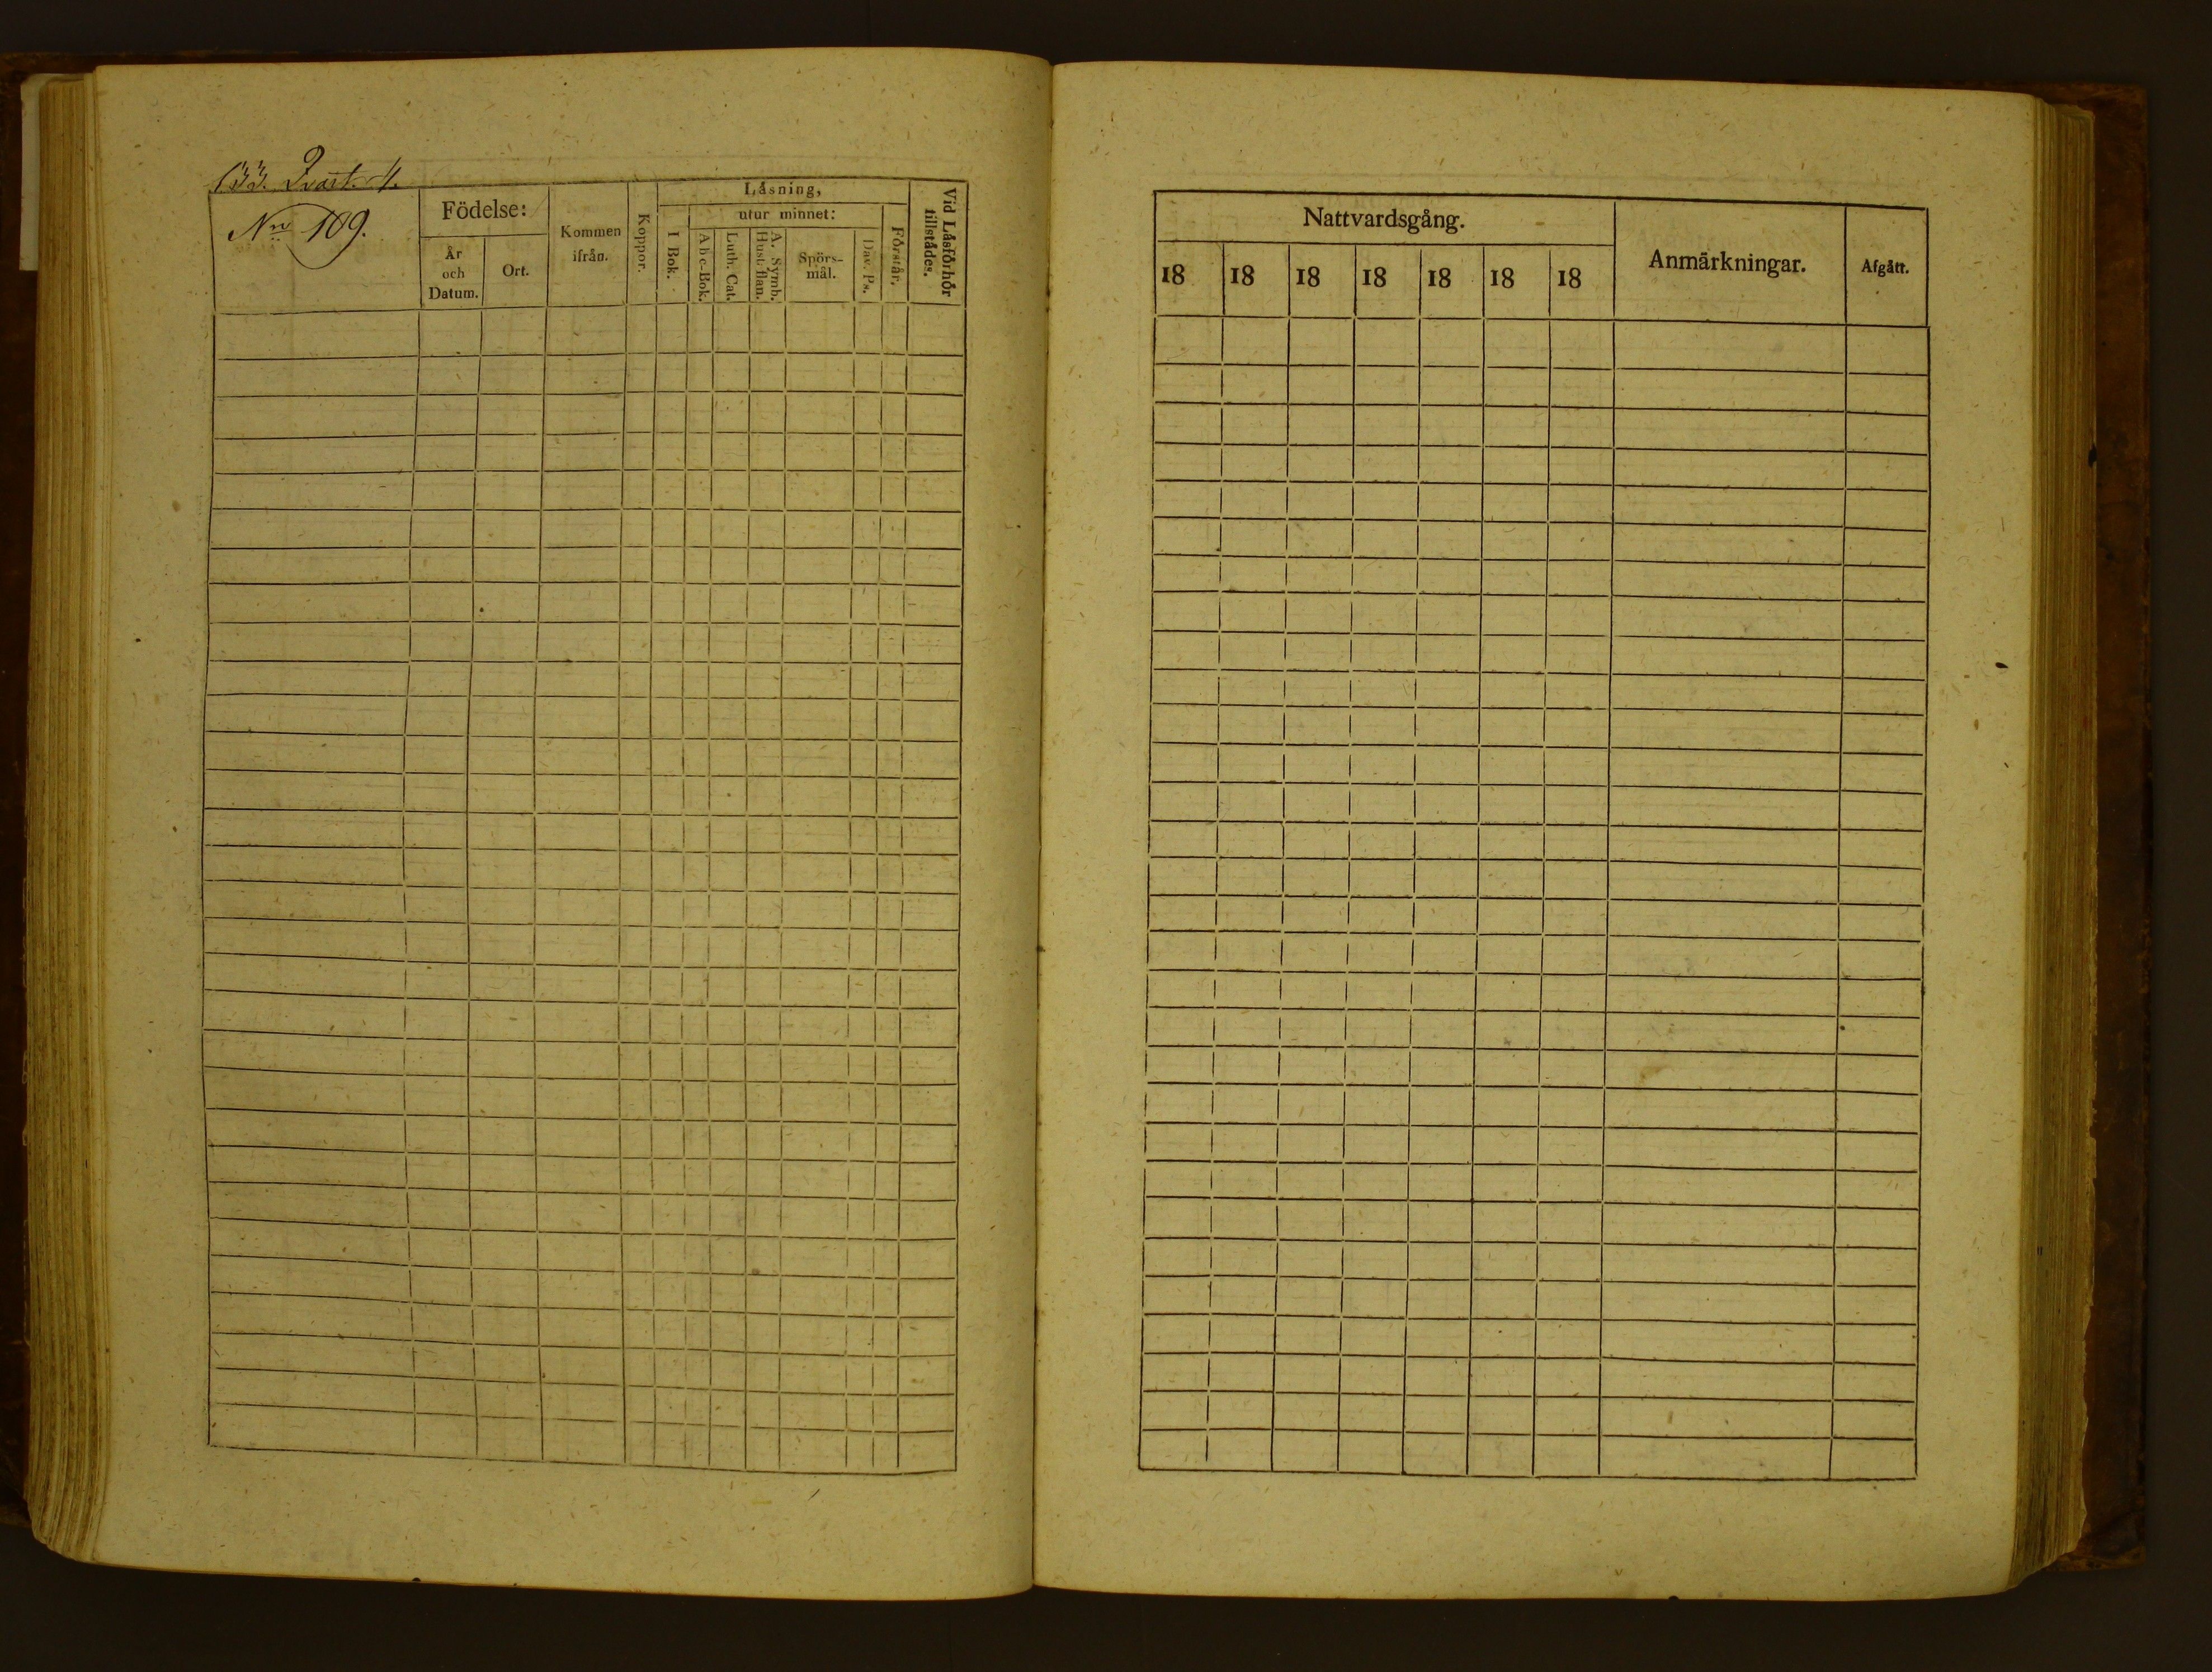 133. Qvart. 4.
Nro 109.
Födelse:
År
och
Datum.
Ort.
Kommen
ifrån.
Koppor.
Läsning,
utur minnet:
I Bok.
Abc-Bok.
Luth. Cat.
A. Symb.
Hust-flan.
Spörs-
mål.
Dav. Ps.
Förstår.
Vid Läsförhör
tillstädes.
Nattvardsgång.
18 18 18 18 18 18 18
Anmärkningar.
Afgått.